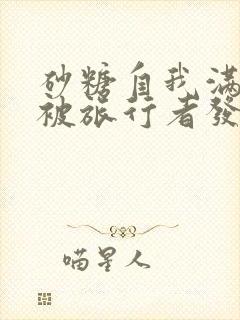 砂糖自我滿
被旅行者發
喵星人